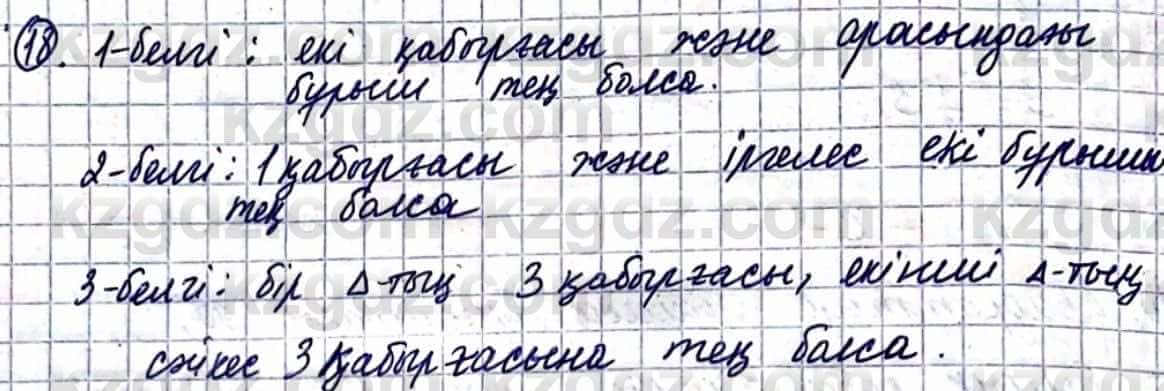 18. 1-белгі: екі қабырғасы және арасындағы
бұрыш тең болса.
2-белгі: 1 қабырғасы және іргелес екі бұрышы
тең болса
3-белгі: бір Δ-тың 3 қабырғасы, екінші Δ-тың
сәйкес 3 қабырғасына тең болса.
kzgdz.com